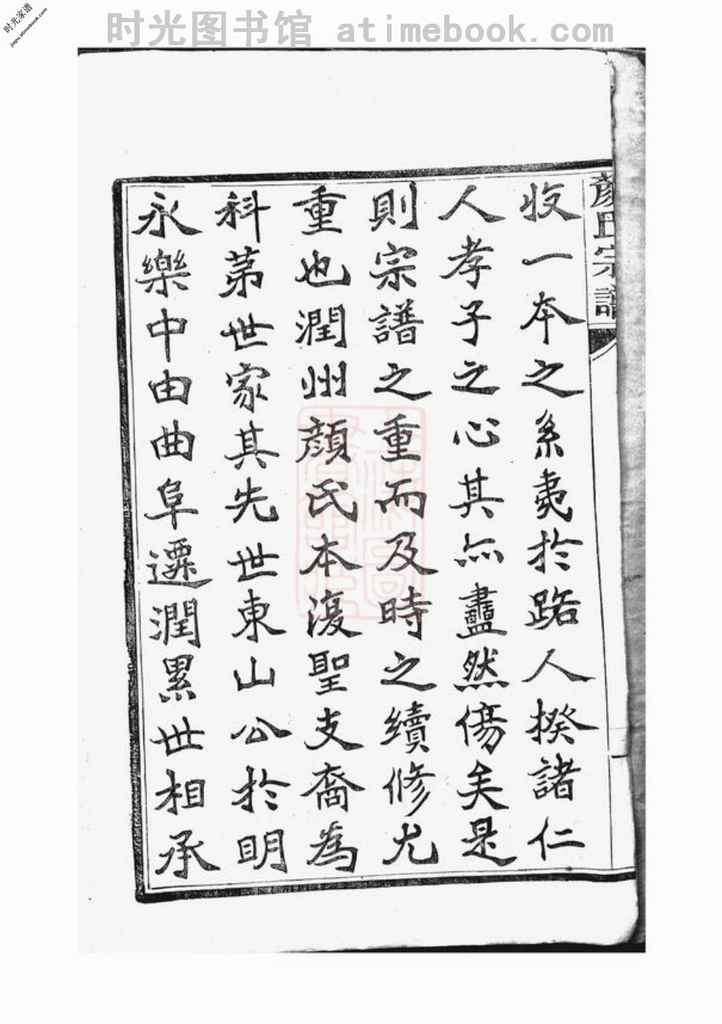 时光家谱
jiapu.atimebook.com
时光图书馆 atimebook.com
顏氏宗譜
收一本之系夷於路人揆諸仁
人孝子之心其亦盡然傷矣是
則宗譜之重而及時之續修尤
重也潤州顏氏本復聖支裔為
科苐世家其先世東山公於明
永樂中由曲阜遷潤累世相承